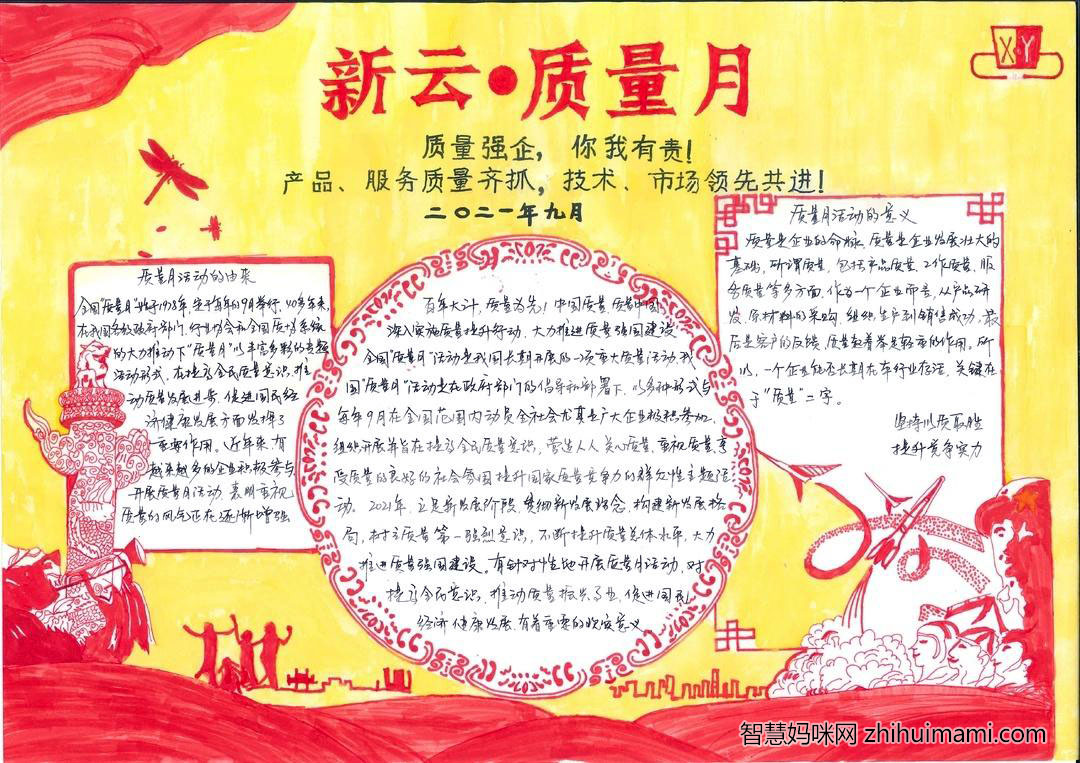 新云·质量月
XY
质量强企，你我有责！
产品、服务质量齐抓，技术、市场领先共进！
二〇二一年九月
质量月活动的由来
全国"质量月"始于1978年,定于每年的9月举行,40多年来,
在我国各级政府部门、行业协会和全国质协系统
的大力推动下"质量月"以丰富多彩的专题
活动形式,在提高全民质量意识,推
动质量发展进步,促进国民经
济健康发展方面发挥了
重要作用。近年来,有
越来越多的企业积极参与
开展质量月活动,表明重视
质量的风气正在逐渐增强
百年大计,质量为先,中国质量,质量中国
深入实施质量提升行动,大力推进质量强国建设
全国"质量月"活动是我国长期开展的一项重大质量活动,我
国"质量月"活动是在政府部门的倡导和部署下,以多种形式与
每年9月在全国范围内动员全社会尤其是广大企业积极参加
组织开展并旨在提高全民质量意识,营造人人关心质量,重视质量,享
受质量的良好的社会氛围,提升国家质量竞争力的群众性主题活
动。2021年,立足新发展阶段,贯彻新发展理念,构建新发展格
局,树立质量第一强烈意识,不断提升质量总体水平,大力
推进质量强国建设。有针对性地开展质量月活动,对
提高全民意识,推动质量振兴事业,促进国民
经济健康发展,有着重要的现实意义
质量月活动的意义
质量是企业的命脉,质量是企业发展壮大的
基础,所谓质量,包括产品质量,工作质量,服
务质量等多方面,作为一个企业而言,从产品研
发,原材料的采购,组织生产到销售成功,最
后是客户的反馈,质量起着举足轻重的作用。所
以,一个企业能否长期在本行业存活,关键在
于"质量"二字。
坚持以质取胜
提升竞争实力
智慧妈咪网 zhihuimami.com